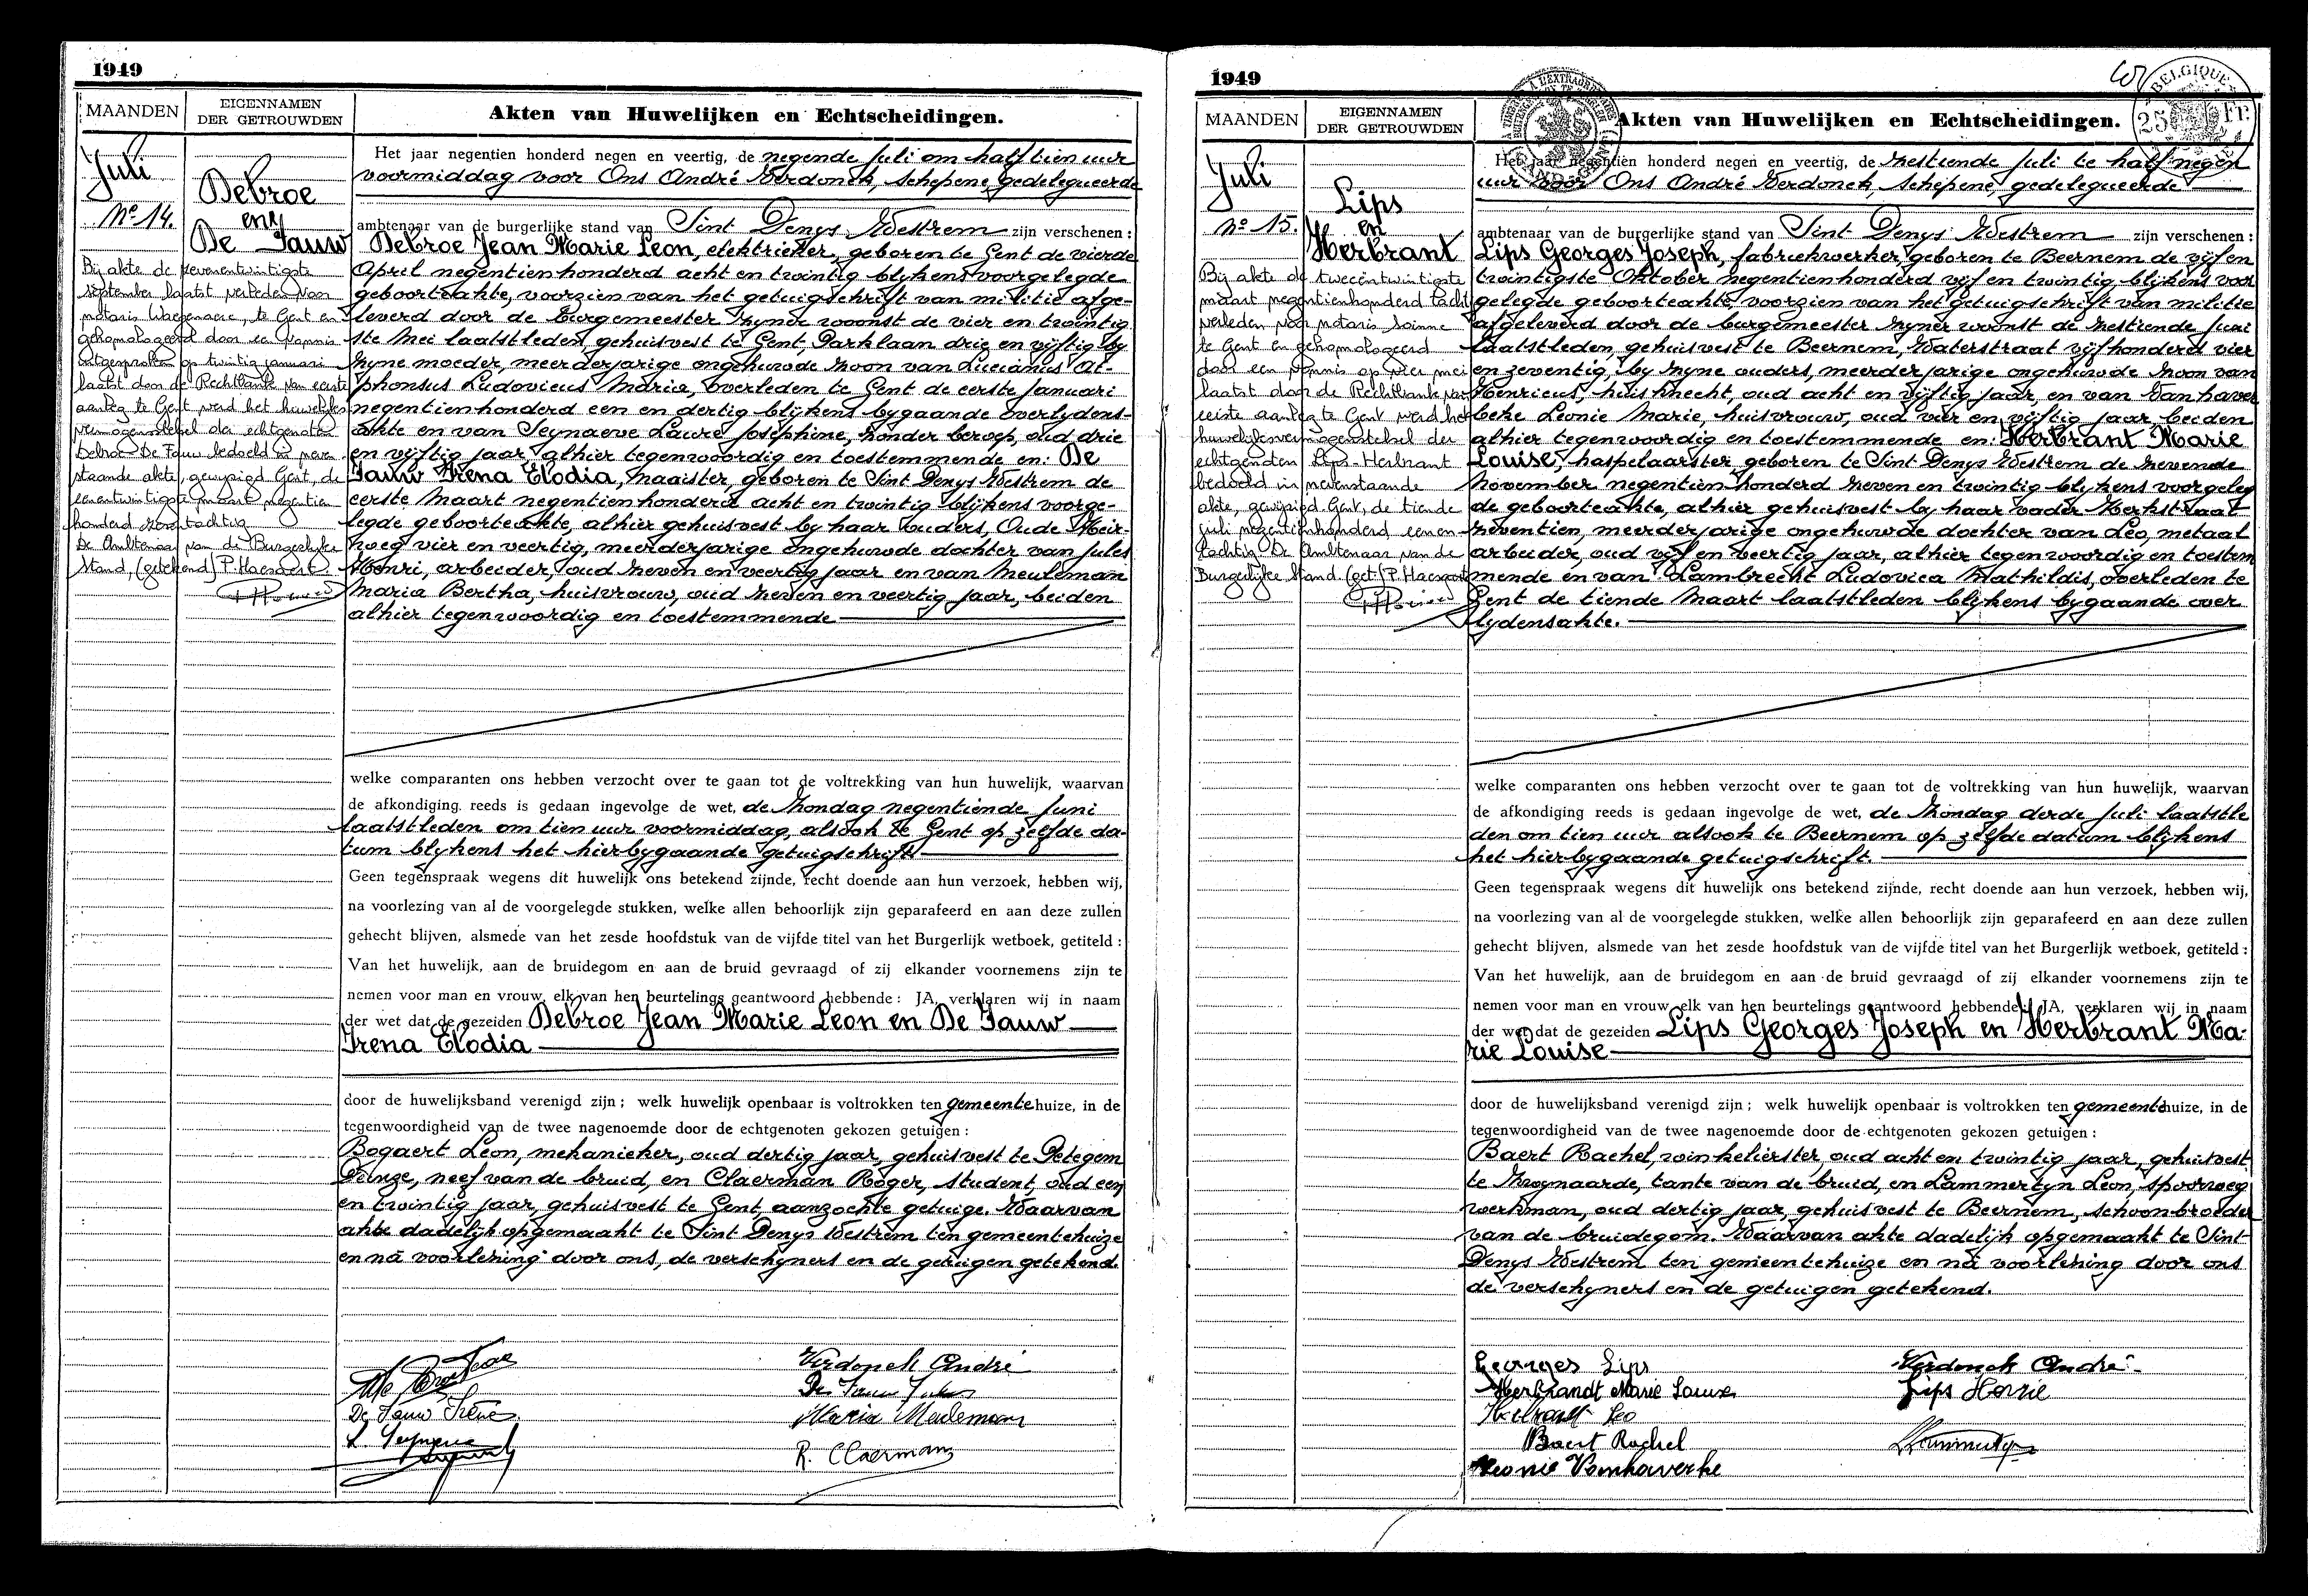 1949
MAANDEN
EIGENNAMEN
DER GETROUWDEN
Akten van Huwelijken en Echtscheidingen.
Juli
No 14.
Debroe
en
De Fauw
Bij akte de zevenentwintigste
september laatst verleden voor
notaris Waegenaere, te Gent en
gehomologeerd door een vonnis
uitgesproken op twintig januari
laatst door de Rechtbank van eerste
aanleg te Gent werd het huwelijks
vermogensstelsel der echtgenoten
Debroe-De Fauw bedoeld in neven-
staande akte, gewijzigd Gent, de
eenentwintigste maart negentien
honderd
De Ambtenaar van de Burgerlijke
Stand, (getekend) P. Haesaert
Het jaar negentien honderd negen en veertig, de negende Juli om half tien uur
voormiddag voor Ons André Verdonck, schepene, gedelegueerde
ambtenaar van de burgerlijke stand van Sint Denys Westrem zijn verschenen :
Debroe Jean Marie Leon, elektrieker, geboren te Gent de vierde
April negentienhonderd acht en twintig blijkens voorgelegde
geboorteakte, voorzien van het getuigschrift van militie afge-
leverd door de burgemeester zyner woonst de vier en twintig
ste Mei laatstleden, gehuisvest te Gent, Parklaan drie en vijftig by
zyne moeder, meerderjarige ongehuwde zoon van Lucianus Al-
phonsus Ludovicus Maria, overleden te Gent de eerste Januari
negentienhonderd een en dertig blijkens bygaande overlydens-
akte en van Seynaeve Laure Josephine, zonder beroep, oud drie
en vyftig jaar, alhier tegenwoordig en toestemmende en: De
Fauw Irena Elodia, naaister, geboren te Sint Denys Westrem de
eerste Maart negentienhonderd acht en twintig blijkens voorge-
legde geboorteakte, alhier gehuisvest by haar ouders, Oude Heir-
weg vier en veertig, meerderjarige ongehuwde dochter van Jules
Henri, arbeider, oud zeven en veertig jaar en van Meuleman
Maria Bertha, huisvrouw, oud zeven en veertig jaar, beiden
alhier tegenwoordig en toestemmende
welke comparanten ons hebben verzocht over te gaan tot de voltrekking van hun huwelijk, waarvan
de afkondiging reeds is gedaan ingevolge de wet, de Zondag negentiende Juni
laatstleden om tien uur voormiddag, alsook te Gent op zelfde da-
tum blykens het hierbygaande getuigschrift
Geen tegenspraak wegens dit huwelijk ons betekend zijnde, recht doende aan hun verzoek, hebben wij,
na voorlezing van al de voorgelegde stukken, welke allen behoorlijk zijn geparafeerd en aan deze zullen
gehecht blijven, alsmede van het zesde hoofdstuk van de vijfde titel van het Burgerlijk wetboek, getiteld :
Van het huwelijk, aan de bruidegom en aan de bruid gevraagd of zij elkander voornemens zijn te
nemen voor man en vrouw, elk van hen beurtelings geantwoord hebbende : JA, verklaren wij in naam
der wet dat de gezeiden Debroe Jean Marie Leon en De Fauw
Irena Elodia
door de huwelijksband verenigd zijn ; welk huwelijk openbaar is voltrokken ten gemeentehuize, in de
tegenwoordigheid van de twee nagenoemde door de echtgenoten gekozen getuigen :
Bogaert Leon, mekanieker, oud dertig jaar, gehuisvest te Petegem
Deinze, neef van de bruid, en Claerman Roger, student, oud een
en twintig jaar, gehuisvest te Gent, aanzochte getuige. Waarvan
akte dadelijk opgemaakt te Sint Denys Westrem ten gemeentehuize
en na voorlezing door ons, de verschyners en de getuigen getekend.
Verdonck André
De Fauw Jules
De Fauw Irène
Maria Meuleman
L. Seynaeve
R. Claerman
1949
MAANDEN
EIGENNAMEN
DER GETROUWDEN
Akten van Huwelijken en Echtscheidingen.
BELGIQUE
25 Fr.
Juli
No 15.
Lips
en
Herbrant
Bij akte de tweeentwintigste
maart negentienhonderd tachtig
verleden voor notaris
te Gent en gehomologeerd
door een vonnis op vier mei
laatst door de Rechtbank van
eerste aanleg te Gent werd het
huwelijksvermogensstelsel der
echtgenoten Lips-Herbrant
bedoeld in nevenstaande
akte, gewijzigd. Gent, de tiende
juli negentienhonderd eenen-
tachtig. De Ambtenaar van de
Burgerlijke Stand. (get) P. Haesaert
Het jaar negentien honderd negen en veertig, de zestiende Juli te half negen
uur voor Ons André Verdonck, schepene, gedelegueerde
ambtenaar van de burgerlijke stand van Sint Denys Westrem zijn verschenen :
Lips Georges Joseph, fabriekwerker, geboren te Beernem de vijf en
twintigste Oktober negentienhonderd vijf en twintig, blijkens voor
gelegde geboorteakte, voorzien van het getuigschrift van militie
afgeleverd door de burgemeester zyner woonst de zestiende Juni
laatstleden, gehuisvest te Beernem, Waterstraat vijfhonderd vier
en zeventig, by zyne ouders, meerderjarige ongehuwde zoon van
Henricus, huisknecht, oud acht en vijftig jaar, en van Vanhaver
beke Leonie Marie, huisvrouw, oud vier en vijftig jaar, beiden
alhier tegenwoordig en toestemmende en: Herbrant Marie
Louise, haspelaarster, geboren te Sint Denys Westrem de zevende
November negentien honderd zeven en twintig blijkens voorgeleg
de geboorteakte, alhier gehuisvest by haar vader Kerkstraat
zeventien, meerderjarige ongehuwde dochter van Leo, metaal
arbeider, oud vijf en veertig jaar, alhier tegenwoordig en toestem
mende en van Lambrecht Ludovica Mathildis, overleden te
Gent de tiende Maart laatstleden blijkens bygaande over
lydensakte.
welke comparanten ons hebben verzocht over te gaan tot de voltrekking van hun huwelijk, waarvan
de afkondiging reeds is gedaan ingevolge de wet, de Zondag derde Juli laatstle
den om tien uur alsook te Beernem op zelfde datum blijkens
het hierbygaande getuigschrift.
Geen tegenspraak wegens dit huwelijk ons betekend zijnde, recht doende aan hun verzoek, hebben wij,
na voorlezing van al de voorgelegde stukken, welke allen behoorlijk zijn geparafeerd en aan deze zullen
gehecht blijven, alsmede van het zesde hoofdstuk van de vijfde titel van het Burgerlijk wetboek, getiteld :
Van het huwelijk, aan de bruidegom en aan de bruid gevraagd of zij elkander voornemens zijn te
nemen voor man en vrouw, elk van hen beurtelings geantwoord hebbende : JA, verklaren wij in naam
der wet dat de gezeiden Lips Georges Joseph en Herbrant Ma-
rie Louise
door de huwelijksband verenigd zijn ; welk huwelijk openbaar is voltrokken ten gemeentehuize, in de
tegenwoordigheid van de twee nagenoemde door de echtgenoten gekozen getuigen :
Baert Rachel, winkelierster, oud acht en twintig jaar, gehuisvest
te Zwynaarde, tante van de bruid, en Lammertyn Leon, spoorweg
werkman, oud dertig jaar, gehuisvest te Beernem, schoonbroeder
van de bruidegom. Waarvan akte dadelijk opgemaakt te Sint-
Denys Westrem ten gemeentehuize en na voorlezing door ons
de verschyners en de getuigen getekend.
Georges Lips
Verdonck André
Herbrandt Marie Louise
Lips Henrie
Herbrandt Leo
Baert Rachel
Lammertyn
Leonie Vanhaverbeke